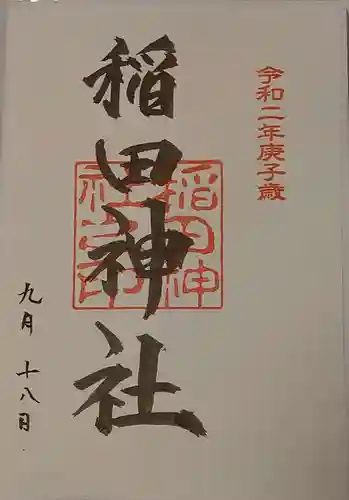 令和二年庚子歳
稲田神社
稲田神
社之印
九月十八日